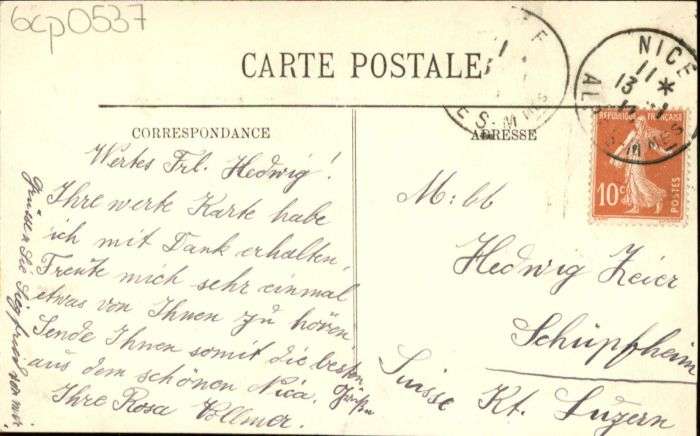 6cp0537
CARTE POSTALE
CORRESPONDANCE
ADRESSE
NICE
11 *
13 - 1
ALPES MMES
ES - MMES
REPUBLIQUE FRANÇAISE
10c
POSTES
Wertes Frl. Hedwig!
Ihre werte Karte habe
ich mit Dank erhalten,
Freute mich sehr einmal
etwas von Ihnen zu hören
Sende Ihnen somit die besten
aus dem schönen Nica. Grüße
Ihre Rosa Vollmer.
Grüssen Sie Siegfried von mir
M: lle
Hedwig Zeier
Schüpfheim
Kt. Luzern
Suisse